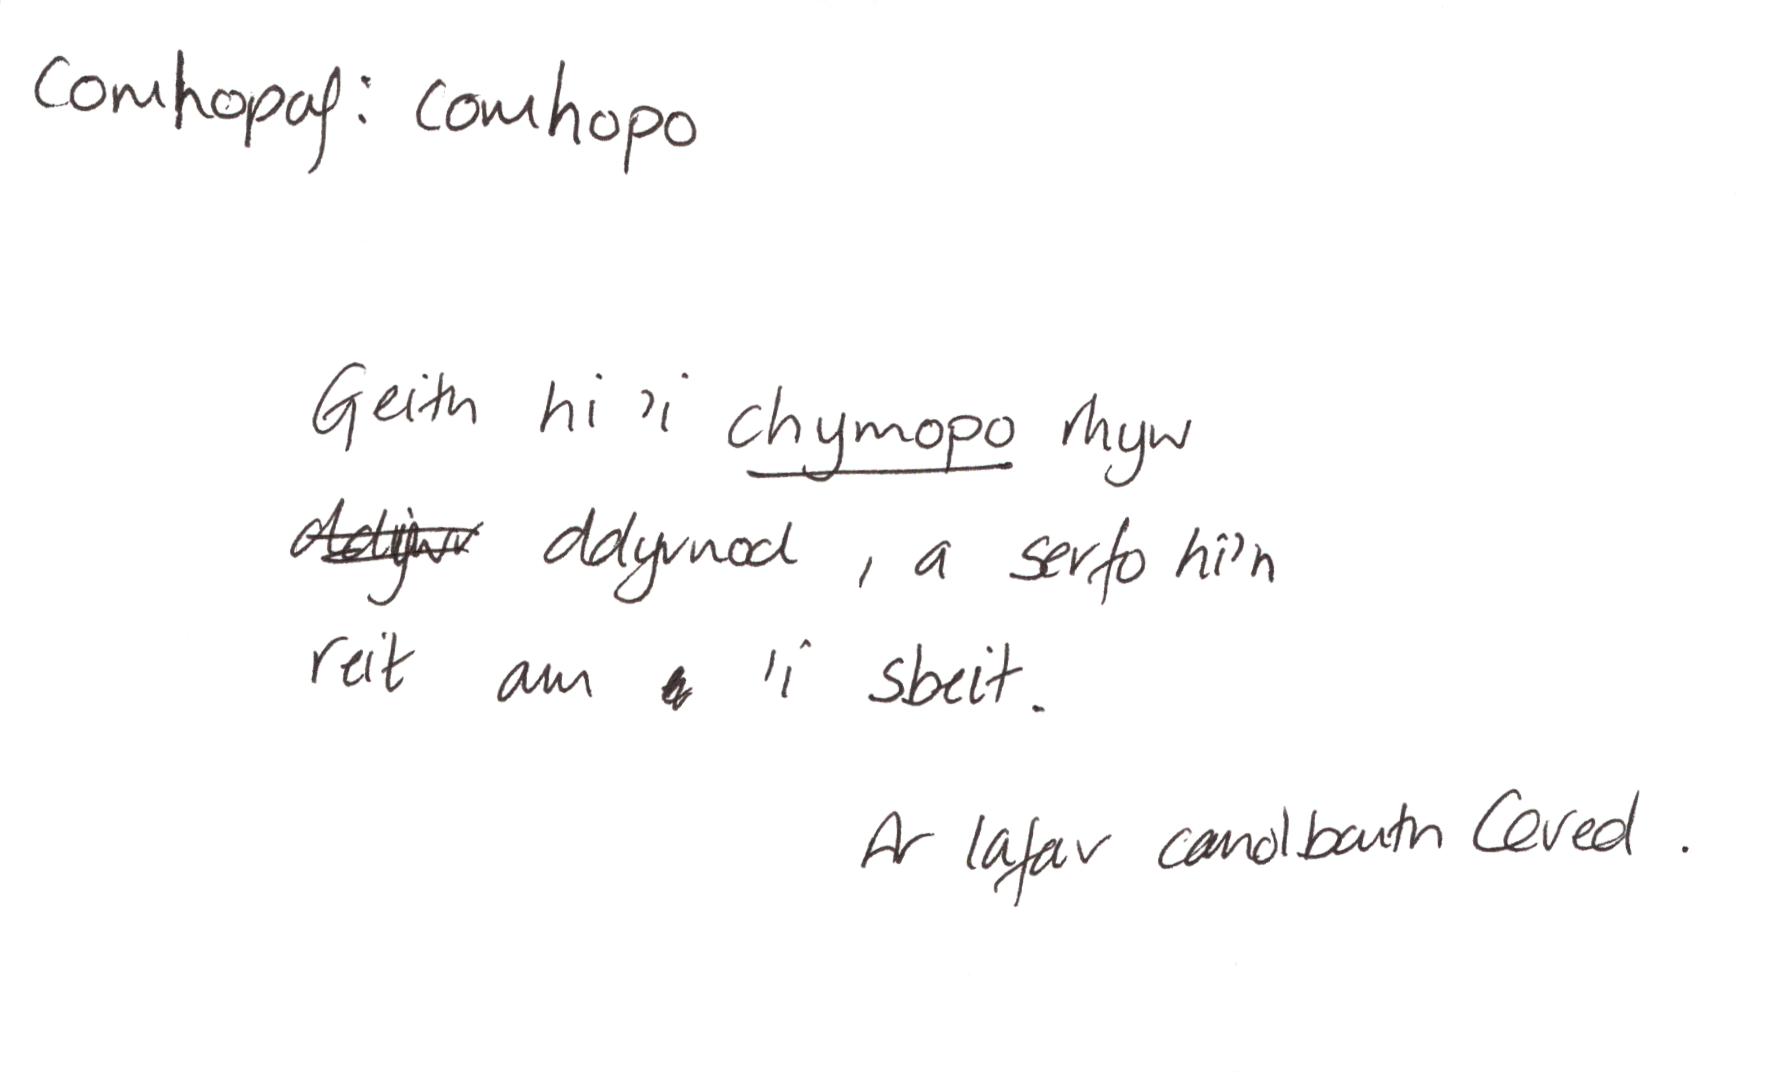 comhopaf: comhopo
Geith hi 'i chymopo rhyw
ddyrnod, a serfo hi'n
reit am 'i sbeit.
Ar lafar canolbarth Cered.